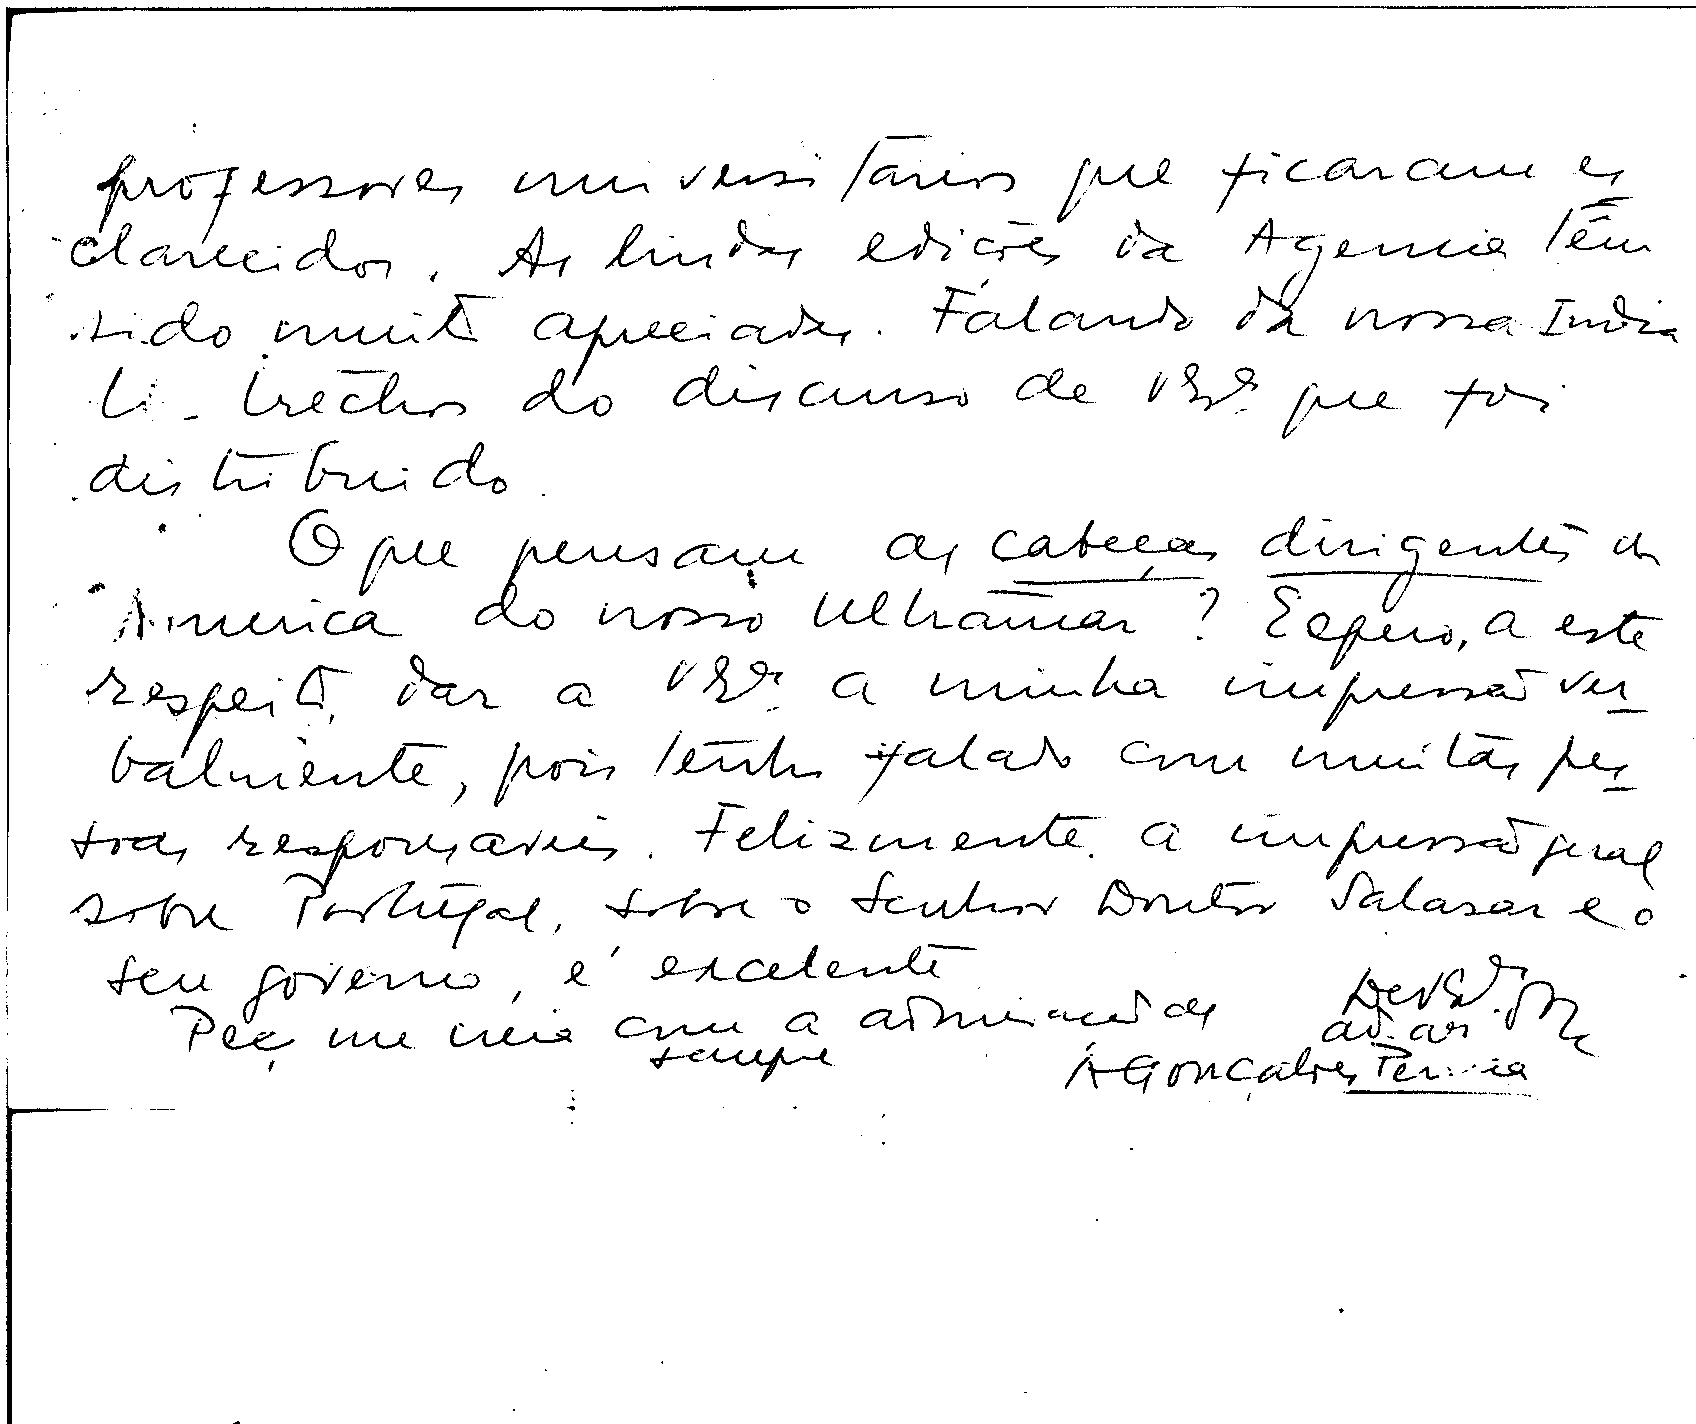 professores universitários que ficaram es
clarecidos. As lindas edições da Agencia têm
sido muito apreciadas. Falando da nossa India
li trechos do discurso de V. Exª. que foi
distribuido.
O que pensam as cabeças dirigentes da
America do nosso Ultramar? Espero, a este
respeito, dar a V. Exª. a minha impressão ver
balmente, pois tenho falado com muitas pes
soas responsaveis. Felizmente a impressão geral
sobre Portugal, sobre o Senhor Doutor Salazar e o
seu governo, é excelente
Peço me creia com a admiração de
sempre
De V. Exª.
A Gonçalves Pereira